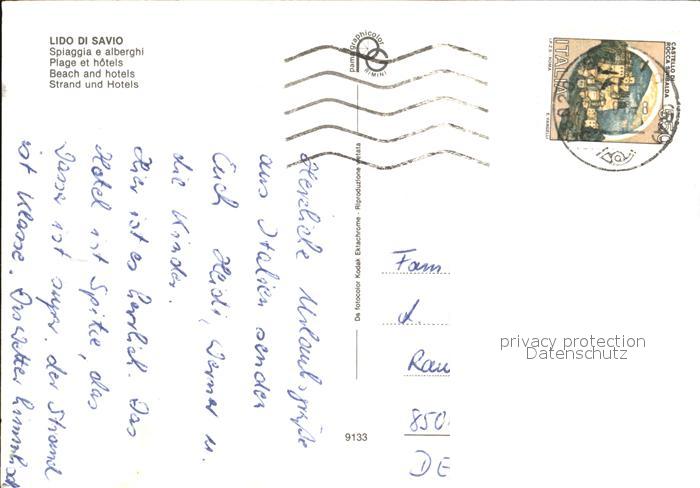 LIDO DI SAVIO
Spiaggia e alberghi
Plage et hôtels
Beach and hotels
Strand und Hotels
pama graphicolor
RIMINI
ITALIA
CASTELLO DI
ROCCA SINIBALDA
De fotocolor Kodak Ektachrome - Riproduzione vietata
9133
Herzliche Urlaubsgrüße
aus Italien senden
Euch Heidi, Werner u.
die Kinder.
Hier ist es herrlich. Das
Hotel ist Spitze, das
Wasser ist angen. der Strand
ist Klasse. Das Wetter himmlisch
Fam
Rau
850
DE
privacy protection
Datenschutz